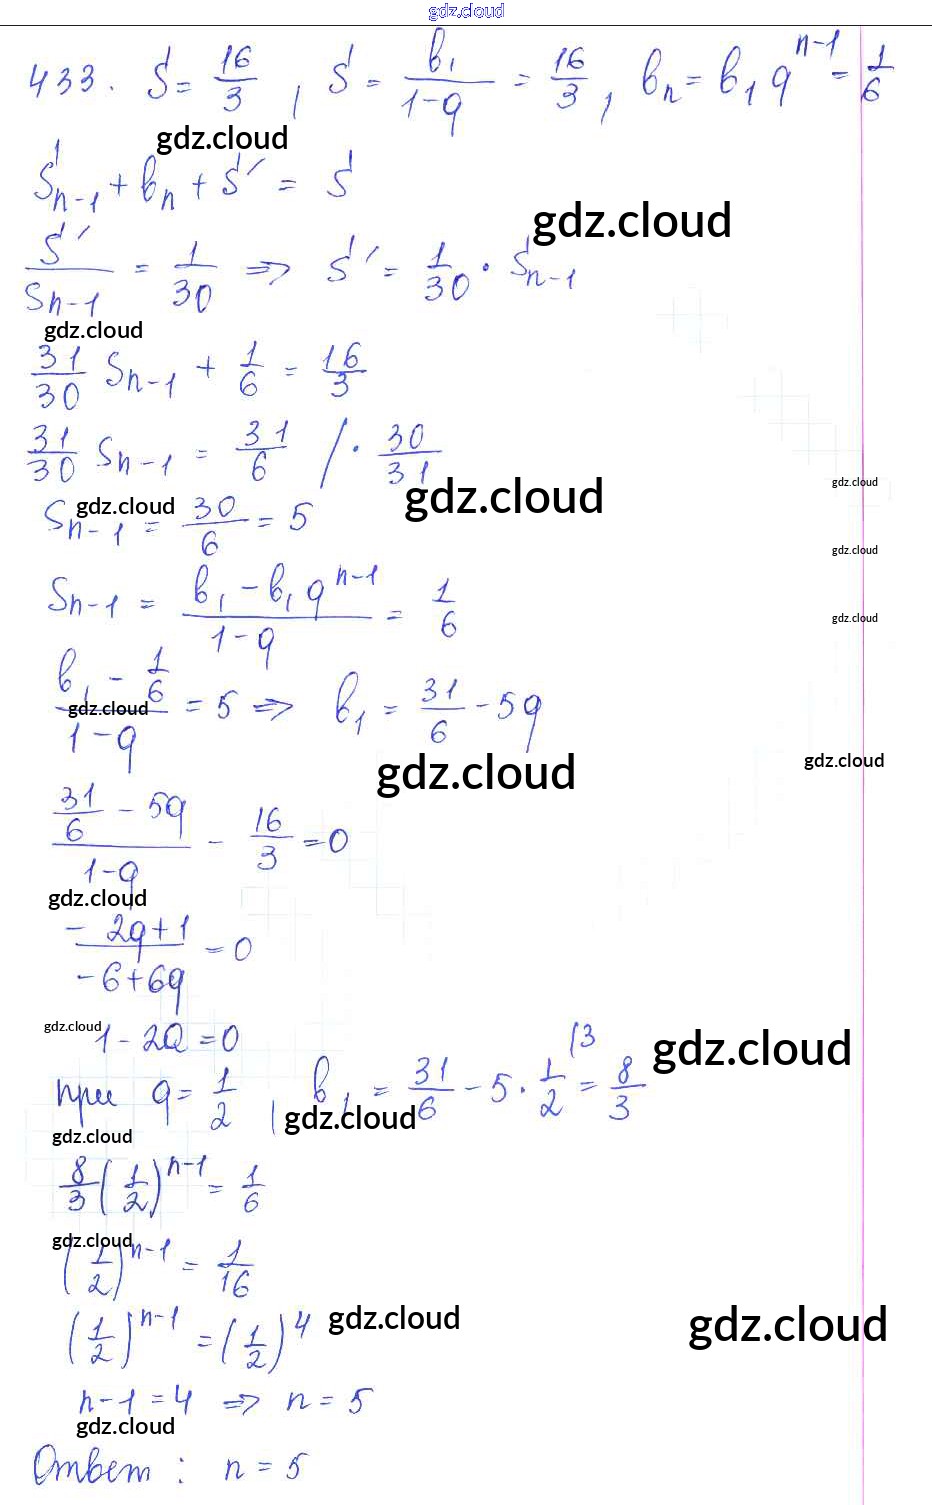 gdz.cloud
433. S = 16/3, S = b₁/(1-q) = 16/3, bₙ = b₁qⁿ⁻¹ = 1/6
gdz.cloud
Sₙ₋₁ + bₙ + S′ = S
gdz.cloud
S′/Sₙ₋₁ = 1/30 => S′ = 1/30 · Sₙ₋₁
gdz.cloud
31/30 Sₙ₋₁ + 1/6 = 16/3
31/30 Sₙ₋₁ = 31/6 / · 30/31
gdz.cloud
gdz.cloud
gdz.cloud
Sₙ₋₁ = 30/6 = 5
gdz.cloud
Sₙ₋₁ = (b₁ - b₁qⁿ⁻¹)/(1-q) = 1/6
gdz.cloud
(b₁ - 1/6)/(1-q) = 5 => b₁ = 31/6 - 5q
gdz.cloud
gdz.cloud
gdz.cloud
(31/6 - 5q)/(1-q) - 16/3 = 0
gdz.cloud
- (2q+1)/(-6+6q) = 0
gdz.cloud
1 - 2q = 0
gdz.cloud
при q = 1/2, b₁ = 31/6 - 5 · 1/2 |3 = 8/3
gdz.cloud
gdz.cloud
8/3 (1/2)ⁿ⁻¹ = 1/6
gdz.cloud
(1/2)ⁿ⁻¹ = 1/16
(1/2)ⁿ⁻¹ = (1/2)⁴
gdz.cloud
gdz.cloud
n-1 = 4 => n = 5
gdz.cloud
Ответ: n = 5